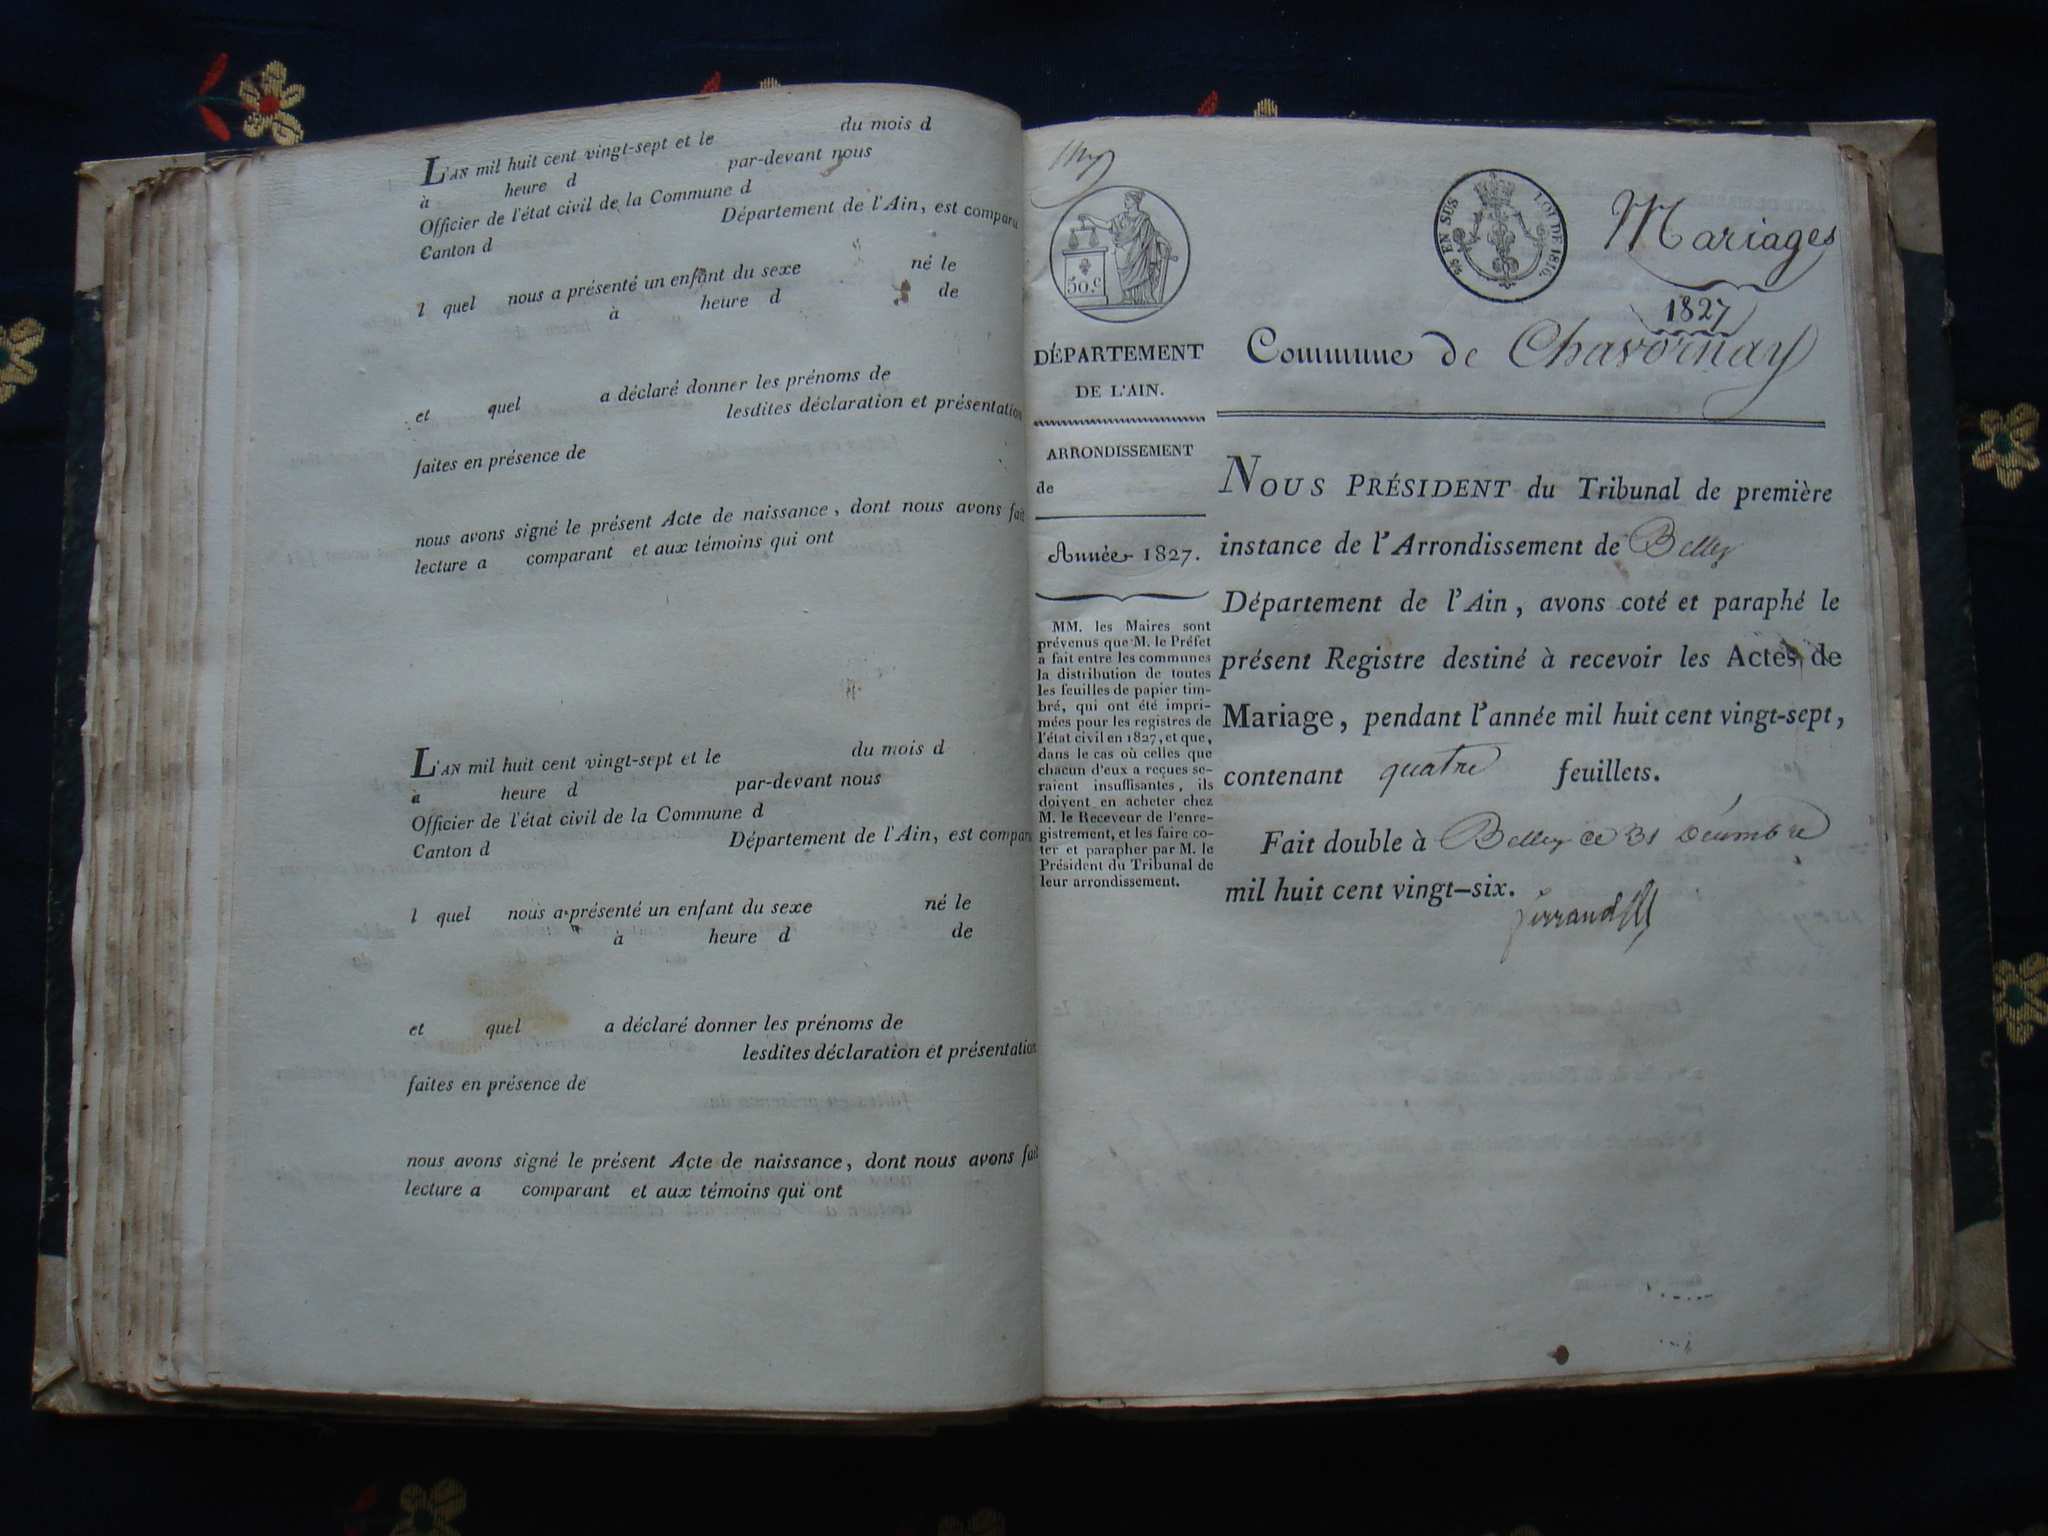 L'AN mil huit cent vingt-sept et le du mois d
à heure d par-devant nous
Officier de l'état civil de la Commune d
Canton d Département de l'Ain, est comparu
l quel nous a présenté un enfant du sexe né le
à heure d de
et quel a déclaré donner les prénoms de
lesdites déclaration et présentation
faites en présence de
nous avons signé le présent Acte de naissance, dont nous avons fait
lecture a comparant et aux témoins qui ont
L'AN mil huit cent vingt-sept et le du mois d
à heure d par-devant nous
Officier de l'état civil de la Commune d
Canton d Département de l'Ain, est comparu
l quel nous a présenté un enfant du sexe né le
à heure d de
et quel a déclaré donner les prénoms de
lesdites déclaration et présentation
faites en présence de
nous avons signé le présent Acte de naissance, dont nous avons fait
lecture a comparant et aux témoins qui ont
50.c
EN SUS LOI DE 1816.
Mariages
1827
Commune de Chavornay
DÉPARTEMENT
DE L'AIN.
ARRONDISSEMENT
de
Année 1827.
MM. les Maires sont
prévenus que M. le Préfet
a fait entre les communes
la distribution de toutes
les feuilles de papier tim-
bré, qui ont été impri-
mées pour les registres de
l'état civil en 1827, et que,
dans le cas où celles que
chacun d'eux a reçues se-
raient insuffisantes, ils
doivent en acheter chez
M. le Receveur de l'enre-
gistrement, et les faire co-
ter et parapher par M. le
Président du Tribunal de
leur arrondissement.
NOUS PRÉSIDENT du Tribunal de première
instance de l'Arrondissement de Belley
Département de l'Ain, avons coté et paraphé le
présent Registre destiné à recevoir les Actes de
Mariage, pendant l'année mil huit cent vingt-sept,
contenant quatre feuillets.
Fait double à Belley ce 31 Décembre
mil huit cent vingt-six.